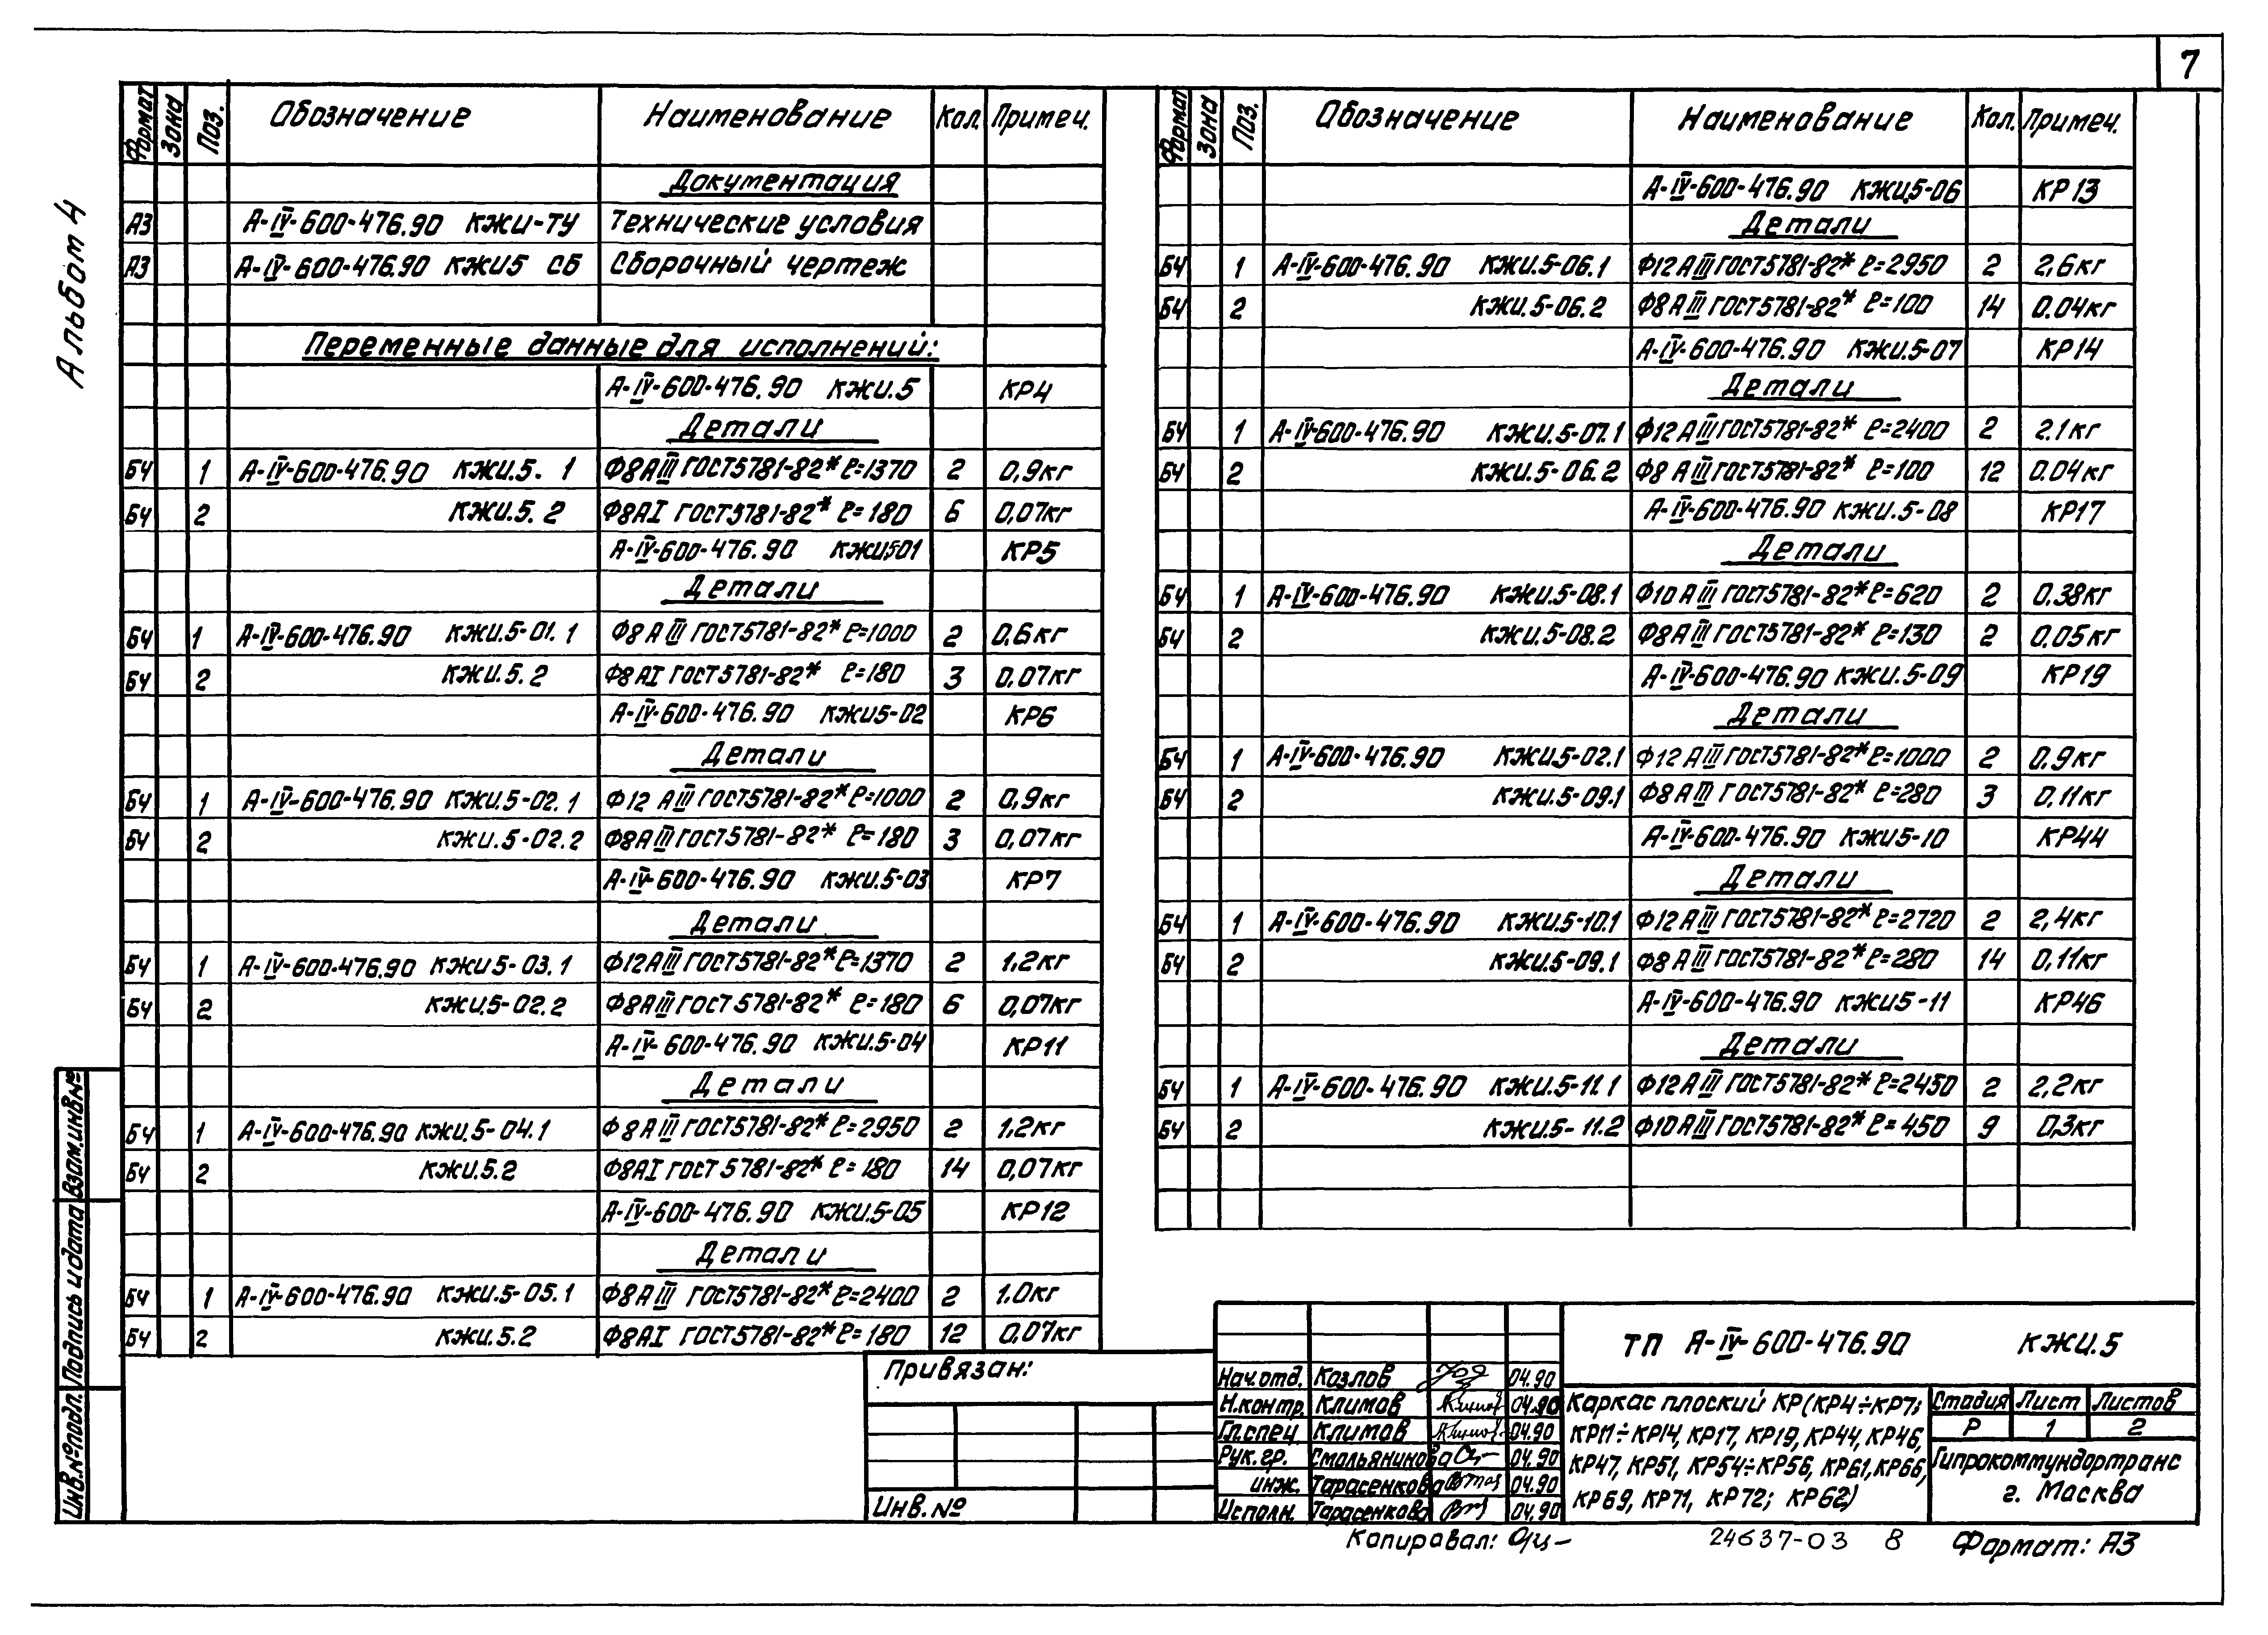 7
Альбом 4
Формат Зона Поз. Обозначение Наименование Кол. Примеч.
Документация
А3 А-IV-600-476.90 КЖИ-ТУ Технические условия
А3 А-IV-600-476.90 КЖИ5 СБ Сборочный чертеж
Переменные данные для исполнений:
А-IV-600-476.90 КЖИ.5 КР4
Детали
БЧ 1 А-IV-600-476.90 КЖИ.5. 1 Ф8АIII ГОСТ5781-82* ℓ=1370 2 0,9кг
БЧ 2 КЖИ.5.2 Ф8АI ГОСТ5781-82* ℓ=180 6 0,07кг
А-IV-600-476.90 КЖИ501 КР5
Детали
БЧ 1 А-IV-600-476.90 КЖИ.5-01.1 Ф8АIII ГОСТ5781-82* ℓ=1000 2 0,6кг
БЧ 2 КЖИ.5.2 Ф8АI ГОСТ5781-82* ℓ=180 3 0,07кг
А-IV-600-476.90 КЖИ5-02 КР6
Детали
БЧ 1 А-IV-600-476.90 КЖИ.5-02.1 Ф12 АIII ГОСТ5781-82* ℓ=1000 2 0,9кг
БЧ 2 КЖИ.5-02.2 Ф8АIII ГОСТ5781-82* ℓ=180 3 0,07кг
А-IV-600-476.90 КЖИ.5-03 КР7
Детали
БЧ 1 А-IV-600-476.90 КЖИ5-03.1 Ф12АIII ГОСТ5781-82* ℓ=1370 2 1,2кг
БЧ 2 КЖИ.5-02.2 Ф8АIII ГОСТ5781-82* ℓ=180 6 0,07кг
А-IV-600-476.90 КЖИ.5-04 КР11
Детали
БЧ 1 А-IV-600-476.90 КЖИ.5-04.1 Ф8АIII ГОСТ5781-82* ℓ=2950 2 1,2кг
БЧ 2 КЖИ.5.2 Ф8АI ГОСТ5781-82* ℓ=180 14 0,07кг
А-IV-600-476.90 КЖИ.5-05 КР12
Детали
БЧ 1 А-IV-600-476.90 КЖИ.5-05.1 Ф8АIII ГОСТ5781-82* ℓ=2400 2 1.0кг
БЧ 2 КЖИ.5.2 Ф8АI ГОСТ5781-82* ℓ=180 12 0,07кг
Формат Зона Поз. Обозначение Наименование Кол. Примеч.
А-IV-600-476.90 КЖИ.5-06 КР13
Детали
БЧ 1 А-IV-600-476.90 КЖИ.5-06.1 Ф12АIII ГОСТ5781-82* ℓ=2950 2 2,6кг
БЧ 2 КЖИ.5-06.2 Ф8АIII ГОСТ5781-82* ℓ=100 14 0.04кг
А-IV-600-476.90 КЖИ.5-07 КР14
Детали
БЧ 1 А-IV-600-476.90 КЖИ.5-07.1 Ф12АIII ГОСТ5781-82* ℓ=2400 2 2.1кг
БЧ 2 КЖИ.5-06.2 Ф8АIII ГОСТ5781-82* ℓ=100 12 0.04кг
А-IV-600-476.90 КЖИ.5-08 КР17
Детали
БЧ 1 А-IV-600-476.90 КЖИ.5-08.1 Ф10АIII ГОСТ5781-82* ℓ=620 2 0,38кг
БЧ 2 КЖИ.5-08.2 Ф8АIII ГОСТ5781-82* ℓ=130 2 0,05кг
А-IV-600-476.90 КЖИ.5-09 КР19
Детали
БЧ 1 А-IV-600-476.90 КЖИ.5-02.1 Ф12АIII ГОСТ5781-82* ℓ=1000 2 0.9кг
БЧ 2 КЖИ.5-09.1 Ф8АIII ГОСТ5781-82* ℓ=280 3 0,11кг
А-IV-600-476.90 КЖИ5-10 КР44
Детали
БЧ 1 А-IV-600-476.90 КЖИ.5-10.1 Ф12АIII ГОСТ5781-82* ℓ=2720 2 2,4кг
БЧ 2 КЖИ.5-09.1 Ф8АIII ГОСТ5781-82* ℓ=280 14 0,11кг
А-IV-600-476.90 КЖИ5-11 КР46
Детали
БЧ 1 А-IV-600-476.90 КЖИ.5-11.1 Ф12АIII ГОСТ5781-82* ℓ=2450 2 2,2кг
БЧ 2 КЖИ.5-11.2 Ф10АIII ГОСТ5781-82* ℓ=450 9 0,3кг
Взам.инв.№
Подпись и дата
Инв.№ подл.
Привязан:
Инв.№
Нач.отд. Козлов 04.90
Н.контр. Климов 04.90
Гл.спец Климов 04.90
Рук.гр. Смольянинова 04.90
инж. Тарасенкова 04.90
Исполн. Тарасенкова 04.90
ТП А-IV-600-476.90 КЖИ.5
Каркас плоский КР(КР4÷КР7;
КР11÷КР14, КР17, КР19, КР44, КР46,
КР47, КР51, КР54÷КР56, КР61, КР66,
КР69, КР71, КР72; КР62)
Стадия Лист Листов
Р 1 2
Гипрокоммундортранс
г. Москва
Копировал:
24637-03 8
Формат: А3